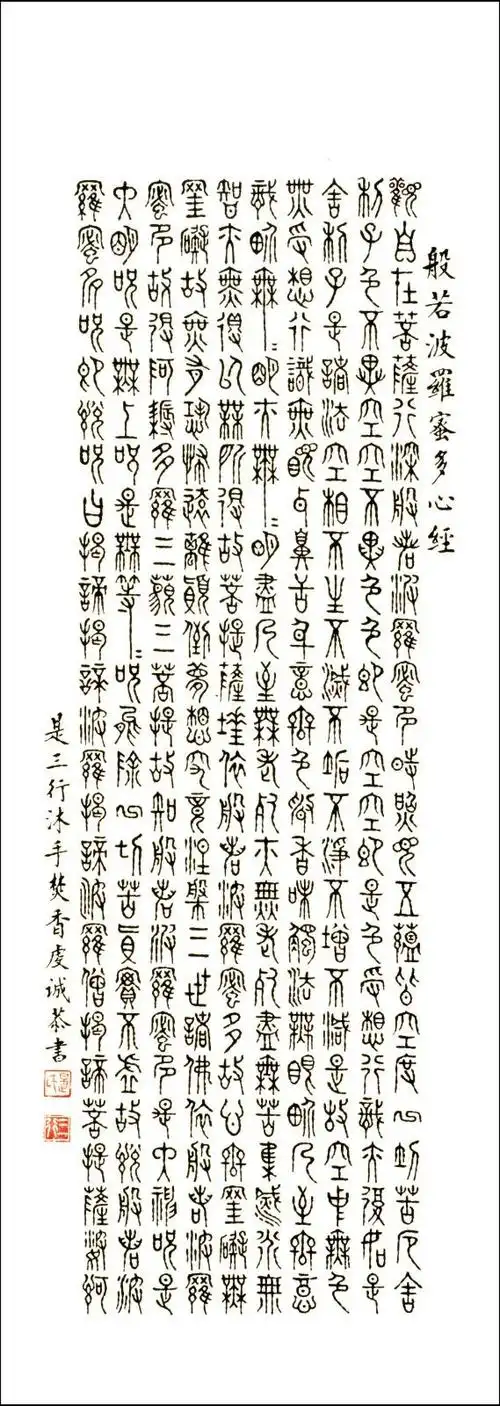 般若波羅蜜多心經
觀自在菩薩行深般若波羅蜜多時照見五蘊皆空度一切苦厄舍
利子色不異空空不異色色即是空空即是色受想行識亦復如是
舍利子是諸法空相不生不滅不垢不淨不增不減是故空中無色
無受想行識無眼耳鼻舌身意無色聲香味觸法無眼界乃至無意
識界無々明亦無々明盡乃至無老死亦無老死盡無苦集滅道無
智亦無得以無所得故菩提薩埵依般若波羅蜜多故心無罣礙無
罣礙故無有恐怖遠離顛倒夢想究竟涅槃三世諸佛依般若波羅
蜜多故得阿耨多羅三藐三菩提故知般若波羅蜜多是大神咒是
大明咒是無上咒是無等々咒能除一切苦真實不虛故說般若波
羅蜜多咒即說咒曰揭諦揭諦波羅揭諦波羅僧揭諦菩提薩婆訶
是三行沐手焚香虔誠恭書